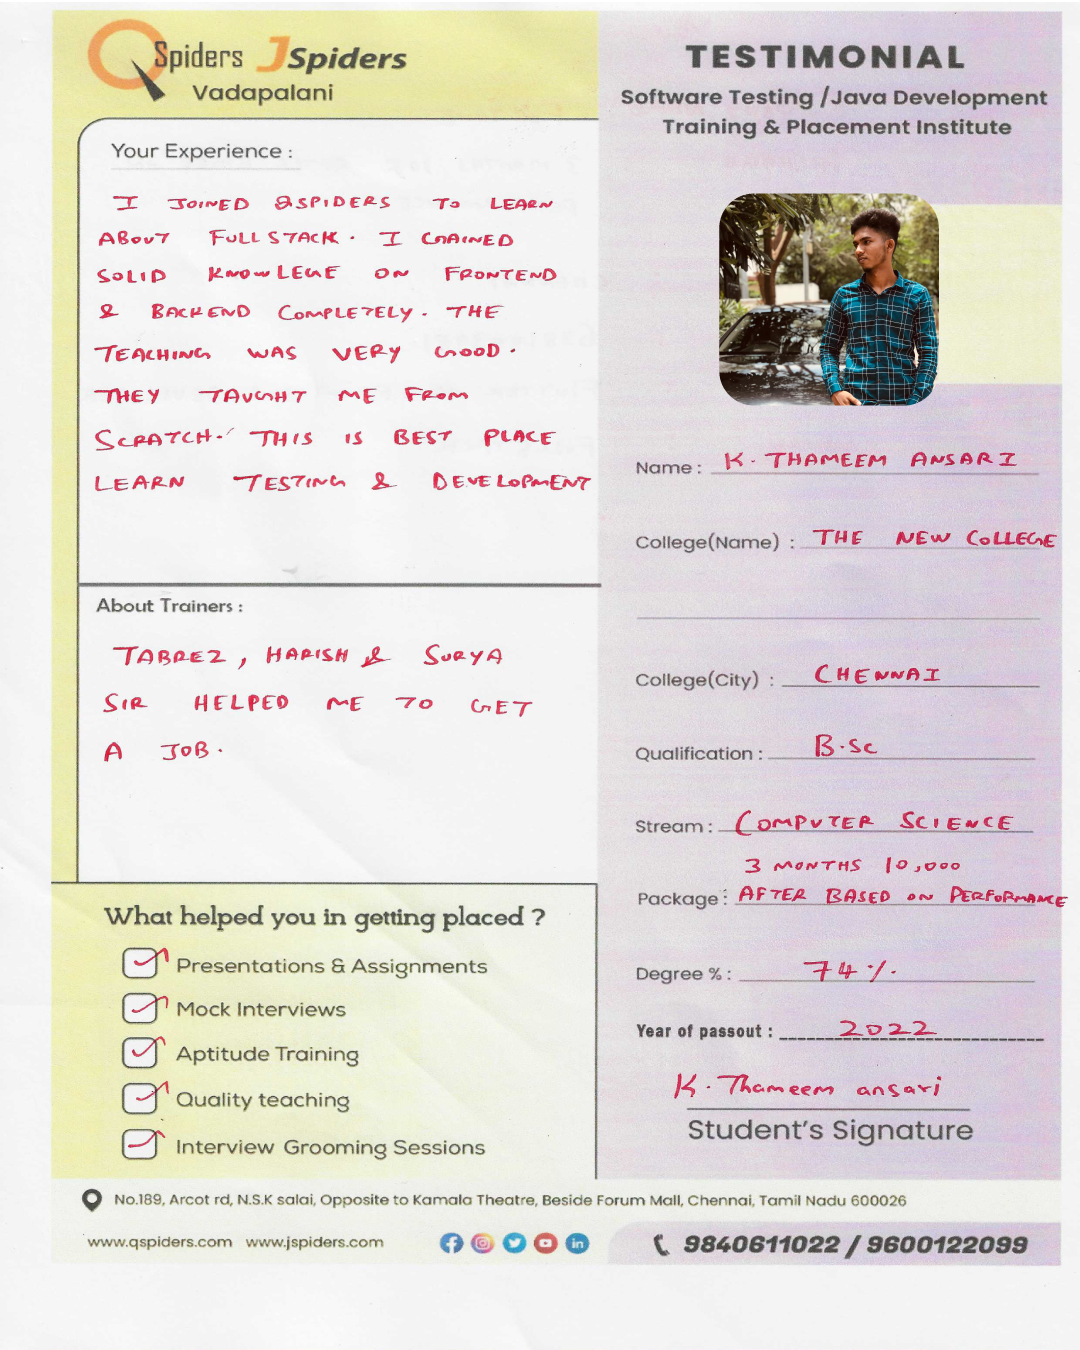 QSpiders JSpiders
Vadapalani
TESTIMONIAL
Software Testing /Java Development
Training & Placement Institute
Your Experience :
I JOINED QSPIDERS TO LEARN
ABOUT FULLSTACK. I GAINED
SOLID KNOWLEGE ON FRONTEND
& BACKEND COMPLETELY. THE
TEACHING WAS VERY GOOD.
THEY TAUGHT ME FROM
SCRATCH. THIS IS BEST PLACE
LEARN TESTING & DEVELOPMENT
About Trainers :
TABREZ, HARISH & SURYA
SIR HELPED ME TO GET
A JOB.
What helped you in getting placed ?
Presentations & Assignments
Mock Interviews
Aptitude Training
Quality teaching
Interview Grooming Sessions
Name : K. THAMEEM ANSARI
College(Name) : THE NEW COLLEGE
College(City) : CHENNAI
Qualification : B.Sc
Stream : COMPUTER SCIENCE
3 MONTHS 10,000
Package : AFTER BASED ON PERFORMANCE
Degree % : 74%
Year of passout : 2022
K. Thameem ansari
Student's Signature
No.189, Arcot rd, N.S.K salai, Opposite to Kamala Theatre, Beside Forum Mall, Chennai, Tamil Nadu 600026
www.qspiders.com www.jspiders.com
9840611022 / 9600122099